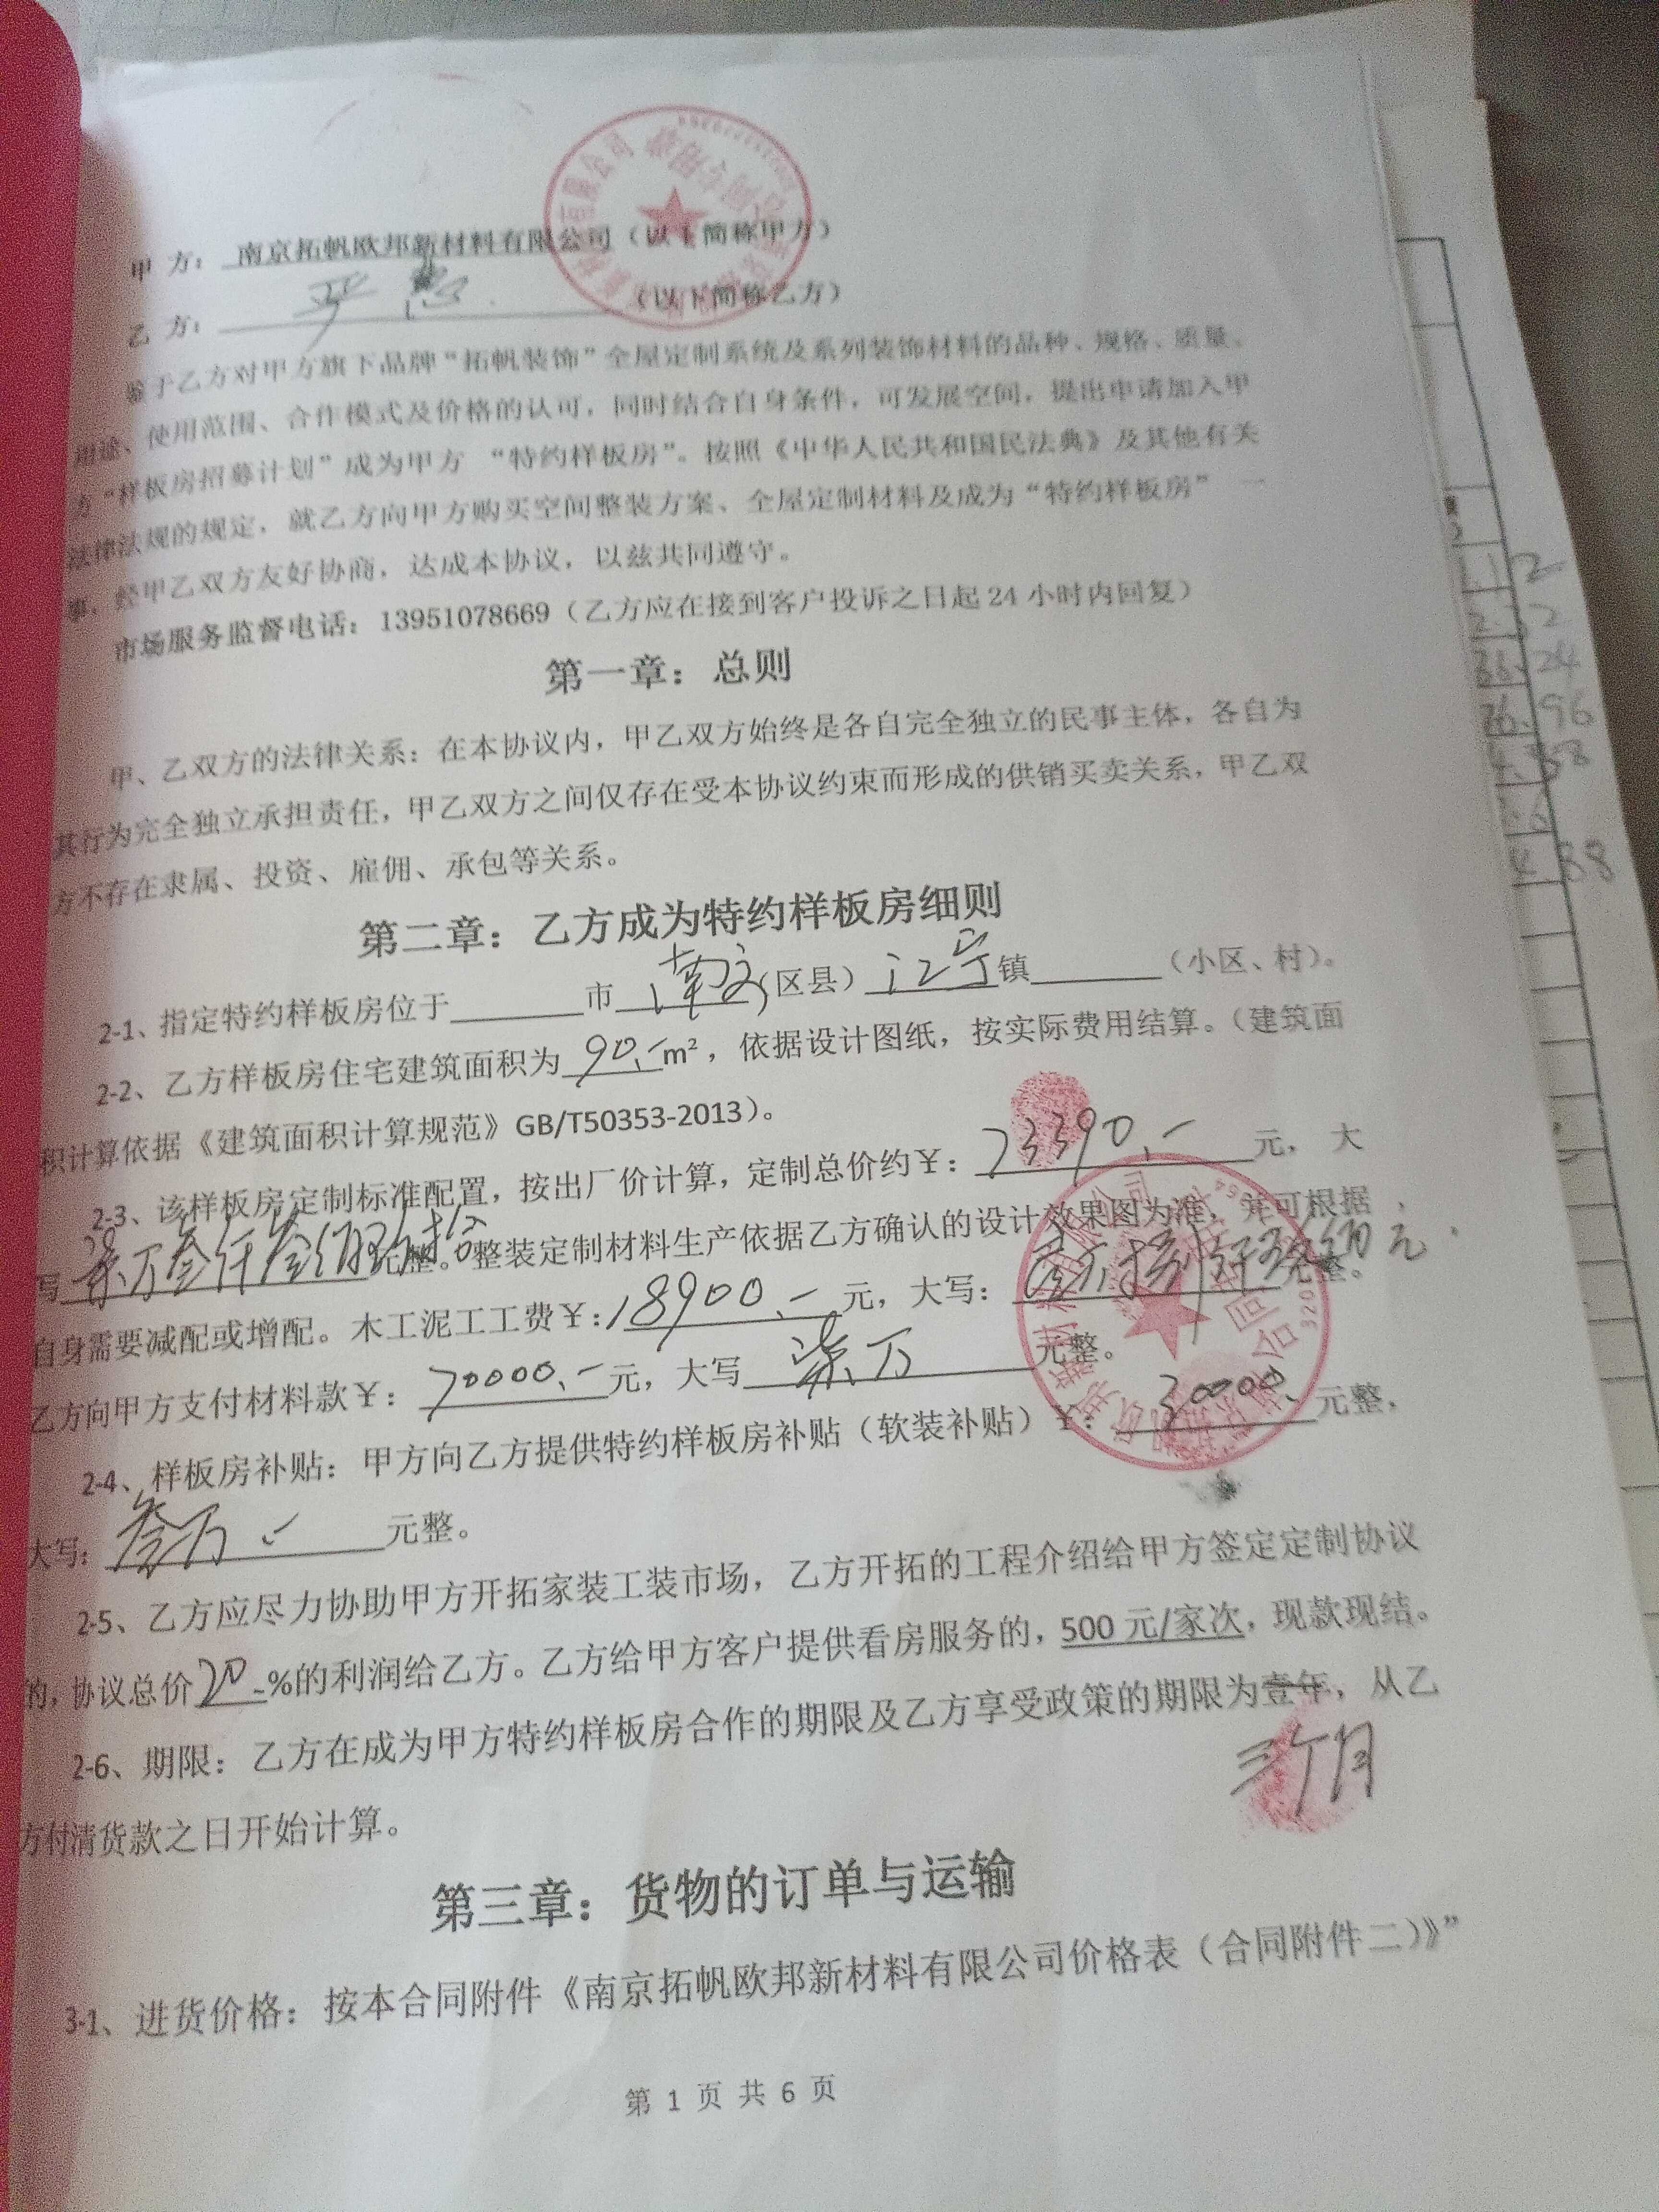 甲 方：南京拓帆欧邦新材料有限公司（以下简称甲方）
乙 方：严 （以下简称乙方）
鉴于乙方对甲方旗下品牌“拓帆装饰”全屋定制系统及系列装饰材料的品种、规格、质量、
用途、使用范围、合作模式及价格的认可，同时结合自身条件，可发展空间，提出申请加入甲
方“样板房招募计划”成为甲方 “特约样板房”。按照《中华人民共和国民法典》及其他有关
法律法规的规定，就乙方向甲方购买空间整装方案、全屋定制材料及成为“特约样板房” 一
事，经甲乙双方友好协商，达成本协议，以兹共同遵守。
市场服务监督电话：13951078669（乙方应在接到客户投诉之日起 24 小时内回复）
第一章：总则
甲、乙双方的法律关系：在本协议内，甲乙双方始终是各自完全独立的民事主体，各自为
其行为完全独立承担责任，甲乙双方之间仅存在受本协议约束而形成的供销买卖关系，甲乙双
方不存在隶属、投资、雇佣、承包等关系。
第二章：乙方成为特约样板房细则
2-1、指定特约样板房位于 市 南京(区县) 江宁 镇 （小区、村）。
2-2、乙方样板房住宅建筑面积为 90.- m²，依据设计图纸，按实际费用结算。（建筑面
积计算依据《建筑面积计算规范》GB/T50353-2013）。
2-3、该样板房定制标准配置，按出厂价计算，定制总价约￥：73390.- 元， 大
写 柒万叁仟叁佰玖拾 元整。整装定制材料生产依据乙方确认的设计效果图为准，并可根据
自身需要减配或增配。木工泥工工费￥：18900.- 元，大写：壹万捌仟玖佰元 元整。
乙方向甲方支付材料款￥：70000.- 元，大写 柒万 元整。
2-4、样板房补贴：甲方向乙方提供特约样板房补贴（软装补贴）￥：30000. 元整，
大写：叁万.- 元整。
2-5、乙方应尽力协助甲方开拓家装工装市场，乙方开拓的工程介绍给甲方签定定制协议
的，协议总价 20-%的利润给乙方。乙方给甲方客户提供看房服务的，500 元/家次，现款现结。
2-6、期限：乙方在成为甲方特约样板房合作的期限及乙方享受政策的期限为壹年，从乙
三个月
方付清货款之日开始计算。
第三章：货物的订单与运输
3-1、进货价格：按本合同附件《南京拓帆欧邦新材料有限公司价格表（合同附件二）》”
第 1 页 共 6 页